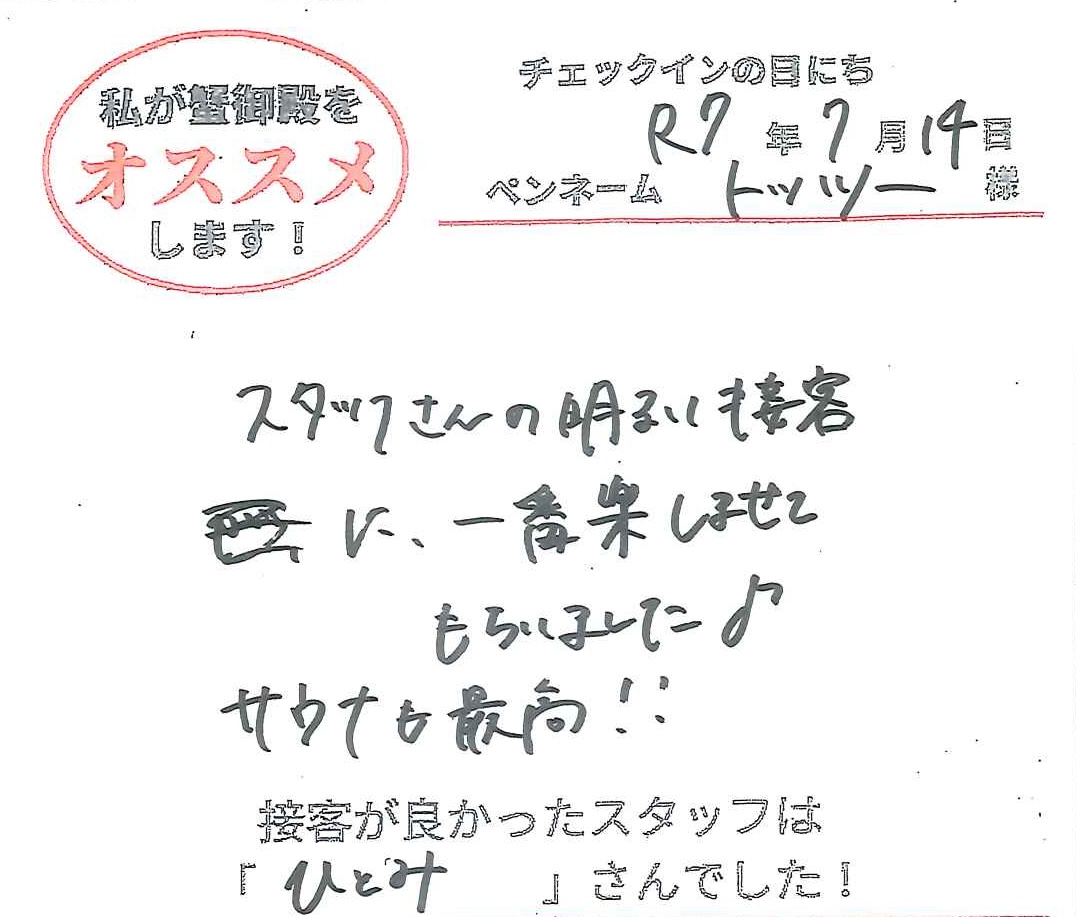 私が蟹御殿を
オススメ
します！
チェックインの日にち
R7年7月14日
ペンネーム トッツー 様
スタッフさんの明るいも接客
に、一番楽しませて
もらいました♪
サウナも最高!!
接客が良かったスタッフは
「ひとみ」さんでした！